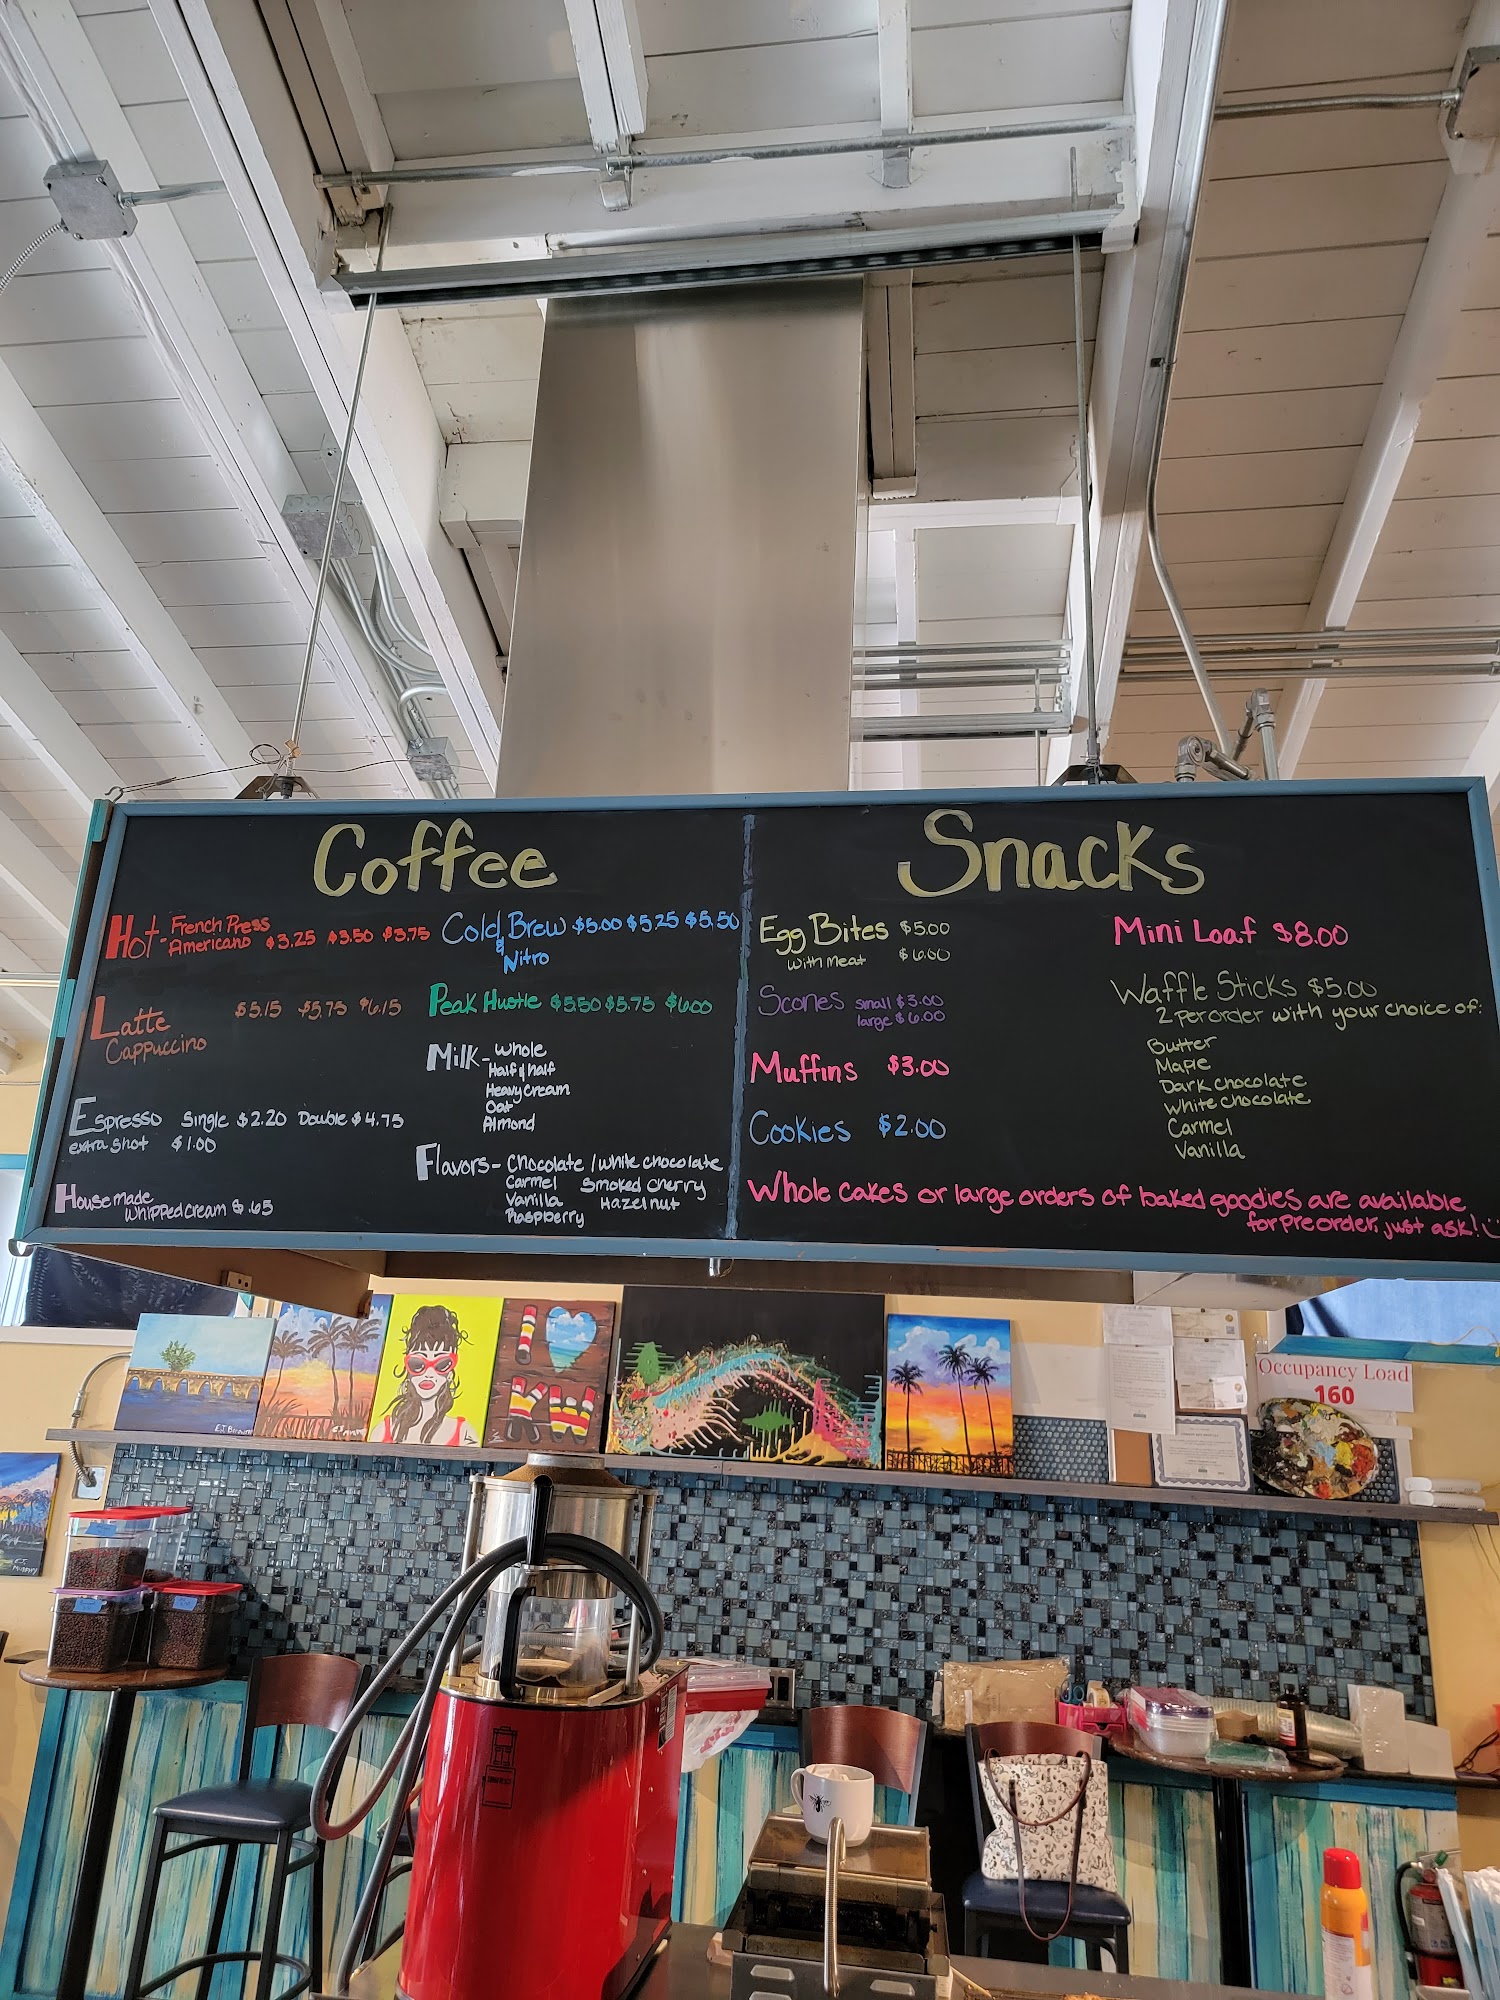 Coffee
Hot - French Press
Americano $3.25 $3.50 $3.75
Latte $5.15 $5.75 $6.15
Cappuccino
Espresso Single $2.20 Double $4.75
extra shot $1.00
House made
Whipped cream $.65
Cold Brew $5.00 $5.25 $5.50
&
Nitro
Peak Hustle $5.50 $5.75 $6.00
Milk - Whole
Half & half
Heavy Cream
Oat
Almond
Flavors - Chocolate / White chocolate
Carmel Smoked Cherry
Vanilla Hazelnut
Raspberry
Snacks
Egg Bites $5.00
with meat $6.00
Scones small $3.00
large $6.00
Muffins $3.00
Cookies $2.00
Mini Loaf $8.00
Waffle Sticks $5.00
2 per order with your choice of:
Butter
Maple
Dark chocolate
White chocolate
Carmel
Vanilla
Whole cakes or large orders of baked goodies are available
for preorder, just ask!
I
KW
Occupancy Load
160